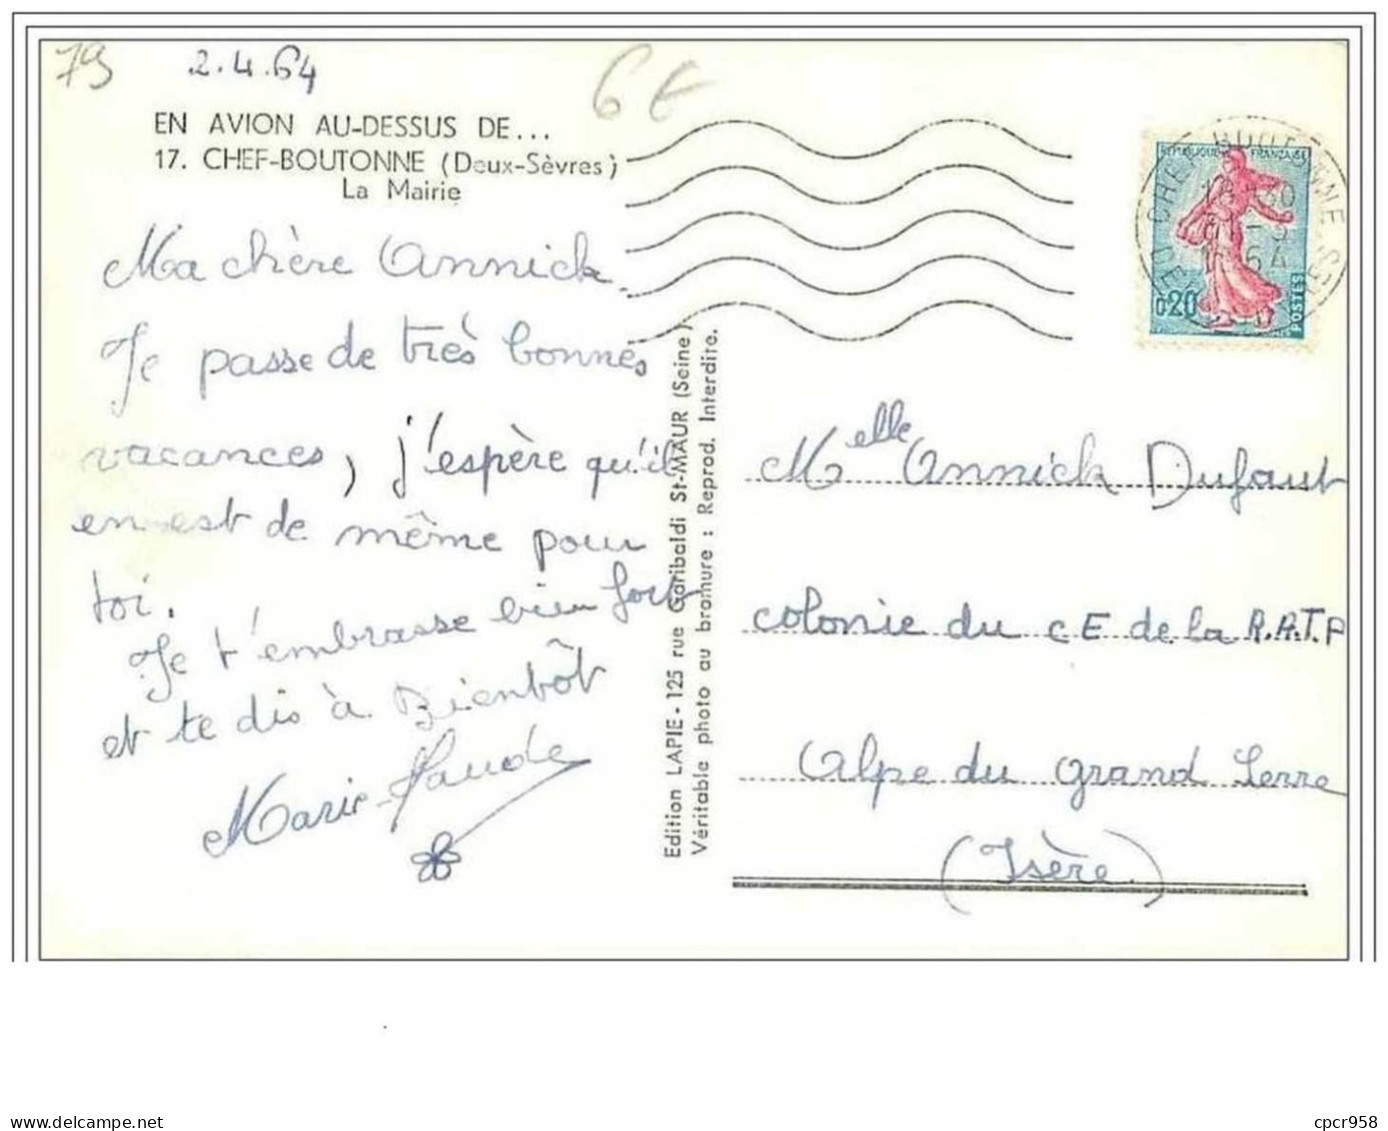 79
2.4.64
6€
EN AVION AU-DESSUS DE...
17. CHEF-BOUTONNE (Deux-Sèvres)
La Mairie
Ma chère Annick.
Je passe de très bonnes
vacances, j'espère qu'il
en est de même pour
toi.
Je t'embrasse bien fort
et te dis à Bientôt
Marie-Claude
Edition LAPIE - 125 rue Garibaldi St-MAUR (Seine)
Véritable photo au bromure : Reprod. Interdite.
REPUBLIQUE FRANÇAISE
0,20
POSTES
Melle Annick Dufaut
colonie du CE de la R.A.T.P
Alpe du Grand Serre
(Isère)
cpcr958